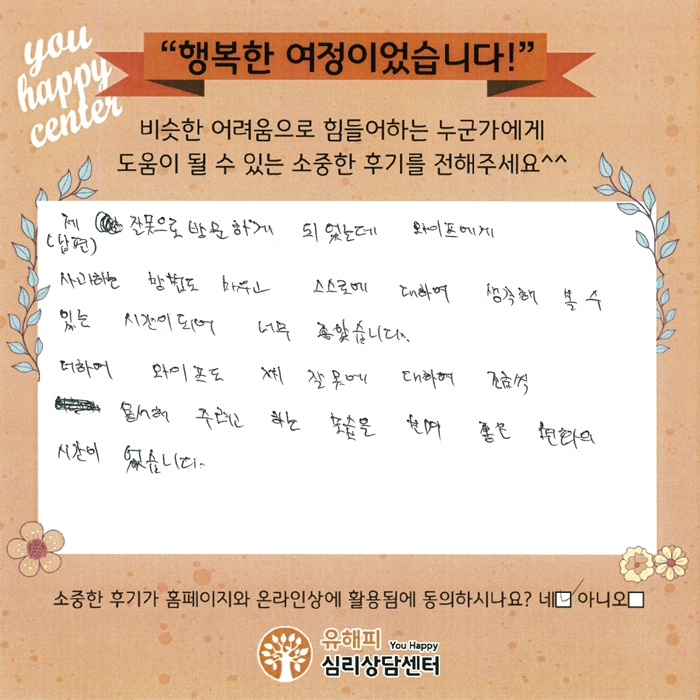 you
happy
center
“행복한 여정이었습니다!”
비슷한 어려움으로 힘들어하는 누군가에게
도움이 될 수 있는 소중한 후기를 전해주세요^^
제 잘못으로 방문하게 되었는데 와이프에게
(남편)
사과하는 방법도 배우고 스스로에 대하여 생각해 볼 수
있는 시간이되어 너무 좋았습니다.
더하여 와이프도 제 잘못에 대하여 조금씩
용서해 주려고 하는 모습을 보여 좋은 변화의
시간이 었습니다.
소중한 후기가 홈페이지와 온라인상에 활용됨에 동의하시나요? 네 아니오
유해피 You Happy
심리상담센터